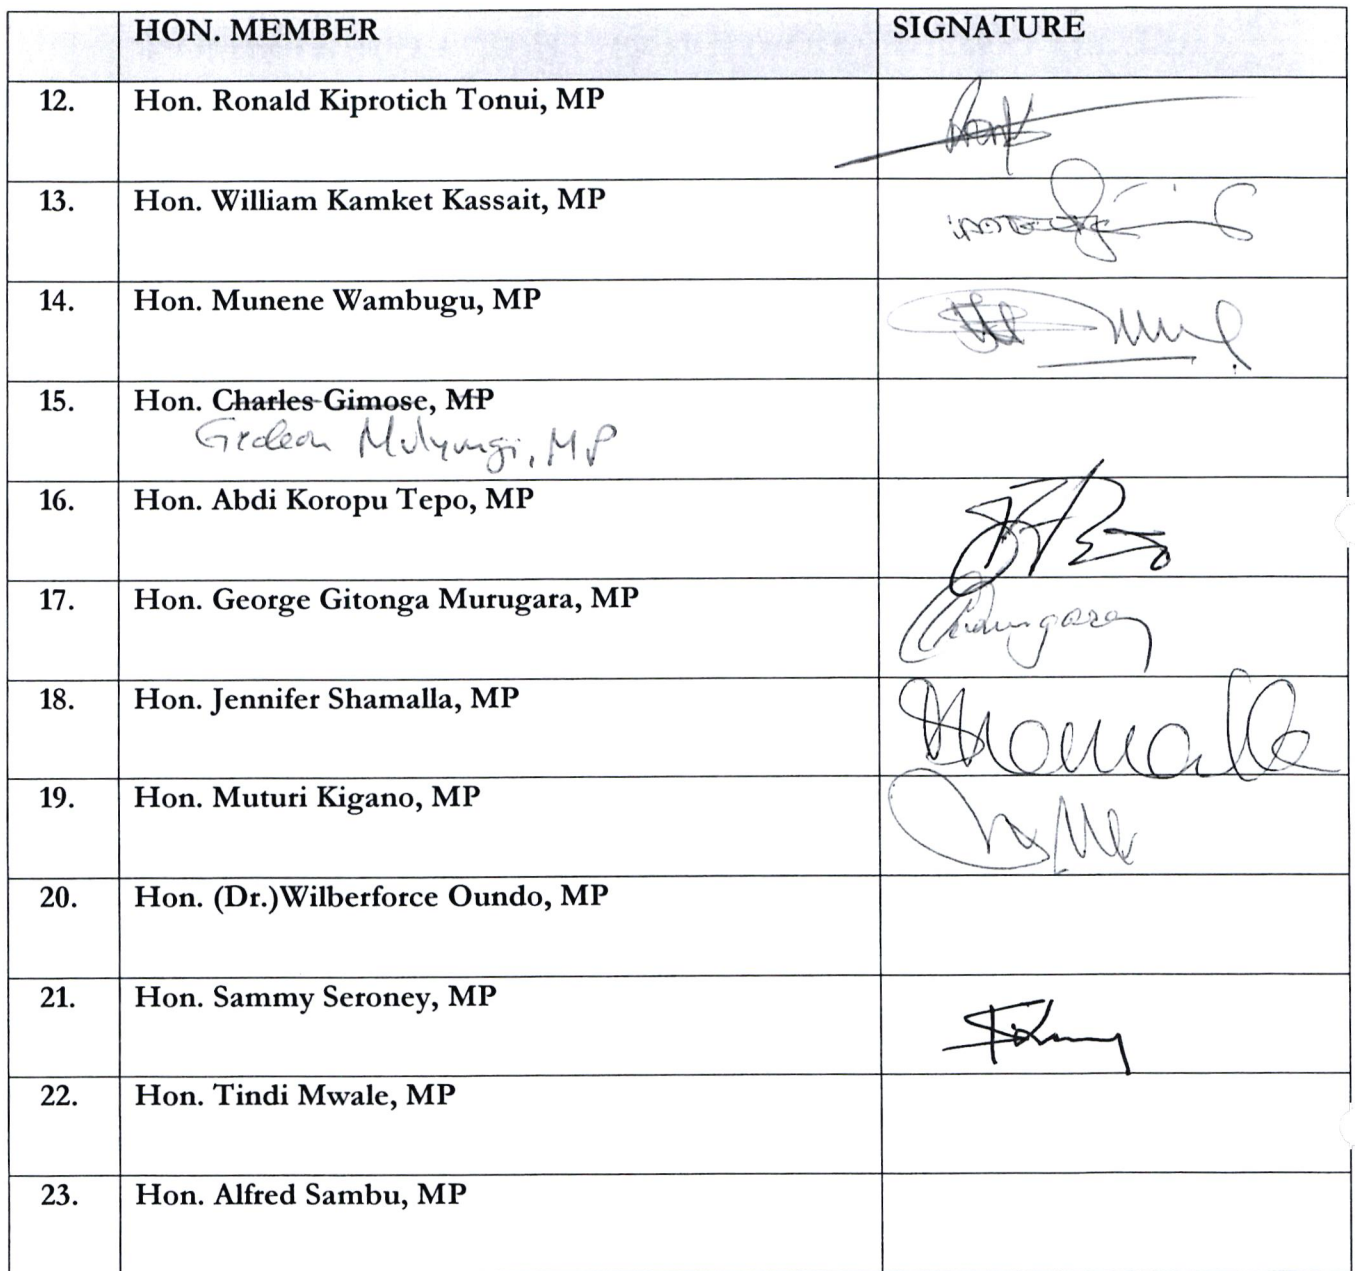 HON. MEMBER SIGNATURE
12. Hon. Ronald Kiprotich Tonui, MP
13. Hon. William Kamket Kassait, MP
14. Hon. Munene Wambugu, MP
15. Hon. Charles Gimose, MP
Gideon Mulyungi, MP
16. Hon. Abdi Koropu Tepo, MP
17. Hon. George Gitonga Murugara, MP
18. Hon. Jennifer Shamalla, MP
19. Hon. Muturi Kigano, MP
20. Hon. (Dr.)Wilberforce Oundo, MP
21. Hon. Sammy Seroney, MP
22. Hon. Tindi Mwale, MP
23. Hon. Alfred Sambu, MP